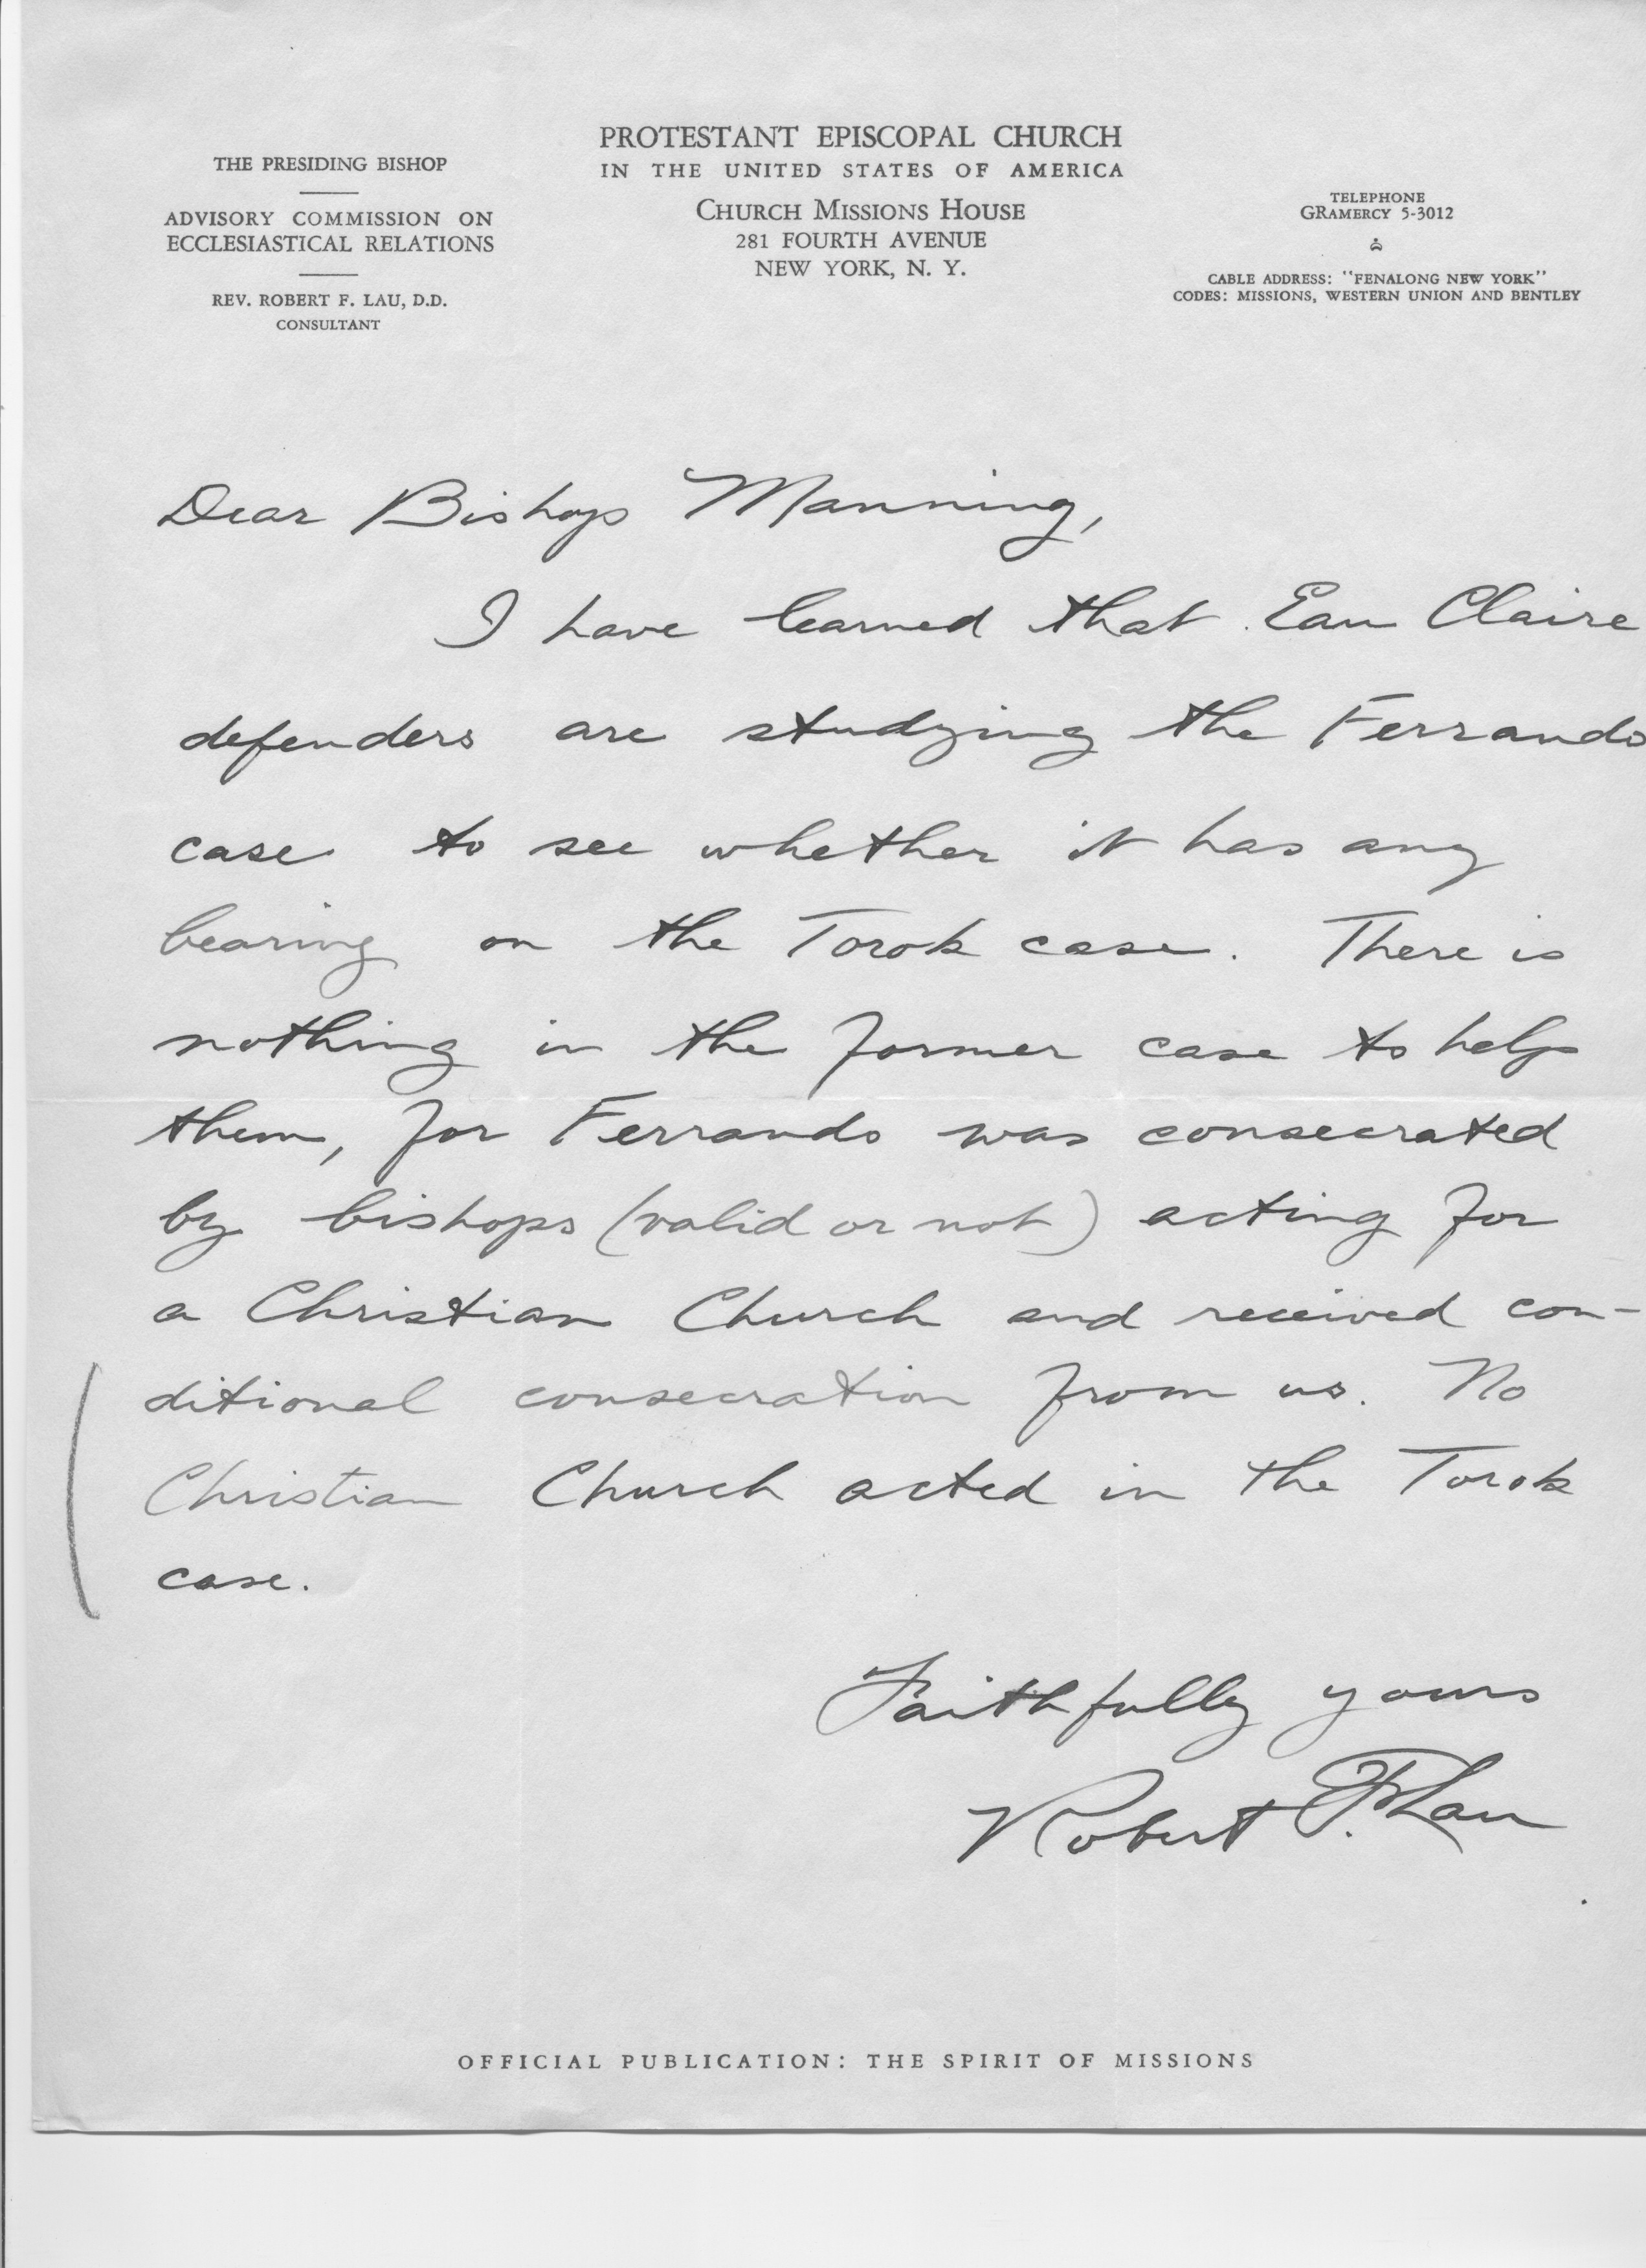 THE PRESIDING BISHOP
ADVISORY COMMISSION ON
ECCLESIASTICAL RELATIONS
REV. ROBERT F. LAU, D.D.
CONSULTANT
PROTESTANT EPISCOPAL CHURCH
IN THE UNITED STATES OF AMERICA
CHURCH MISSIONS HOUSE
281 FOURTH AVENUE
NEW YORK, N. Y.
TELEPHONE
GRAMERCY 5-3012
CABLE ADDRESS: "FENALONG NEW YORK"
CODES: MISSIONS, WESTERN UNION AND BENTLEY
Dear Bishop Manning,
I have learned that Eau Claire
defenders are studying the Ferrando
case to see whether it has any
bearing on the Torok case. There is
nothing in the former case to help
them, for Ferrando was consecrated
by bishops (valid or not) acting for
a Christian Church and received con-
ditional consecration from us. No
Christian Church acted in the Torok
case.
Faithfully yours
Robert F. Lau
OFFICIAL PUBLICATION: THE SPIRIT OF MISSIONS